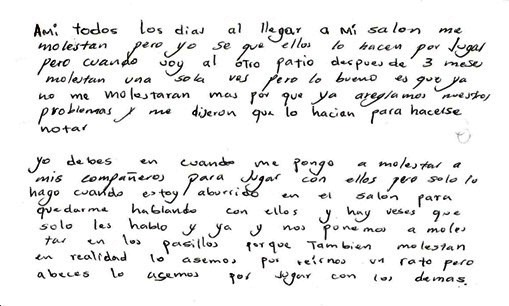 Ami todos los dias al llegar a mi salon me
molestan pero yo se que ellos lo hacen por Jugar
pero cuando voy al otro patio despues de 3 meses
molestan una sola ves pero lo bueno es que ya
no me molestaran mas por que ya areglamos nuestros
problemas y me dijeron que lo hacian para hacerse
notar
yo debes en cuando me pongo a molestar a
mis compañeros para Jugar con ellos pero solo lo
hago cuando estoy aburrido en el salon para
quedarme hablando con ellos y hay veses que
solo les hablo y ya y nos ponemos a moles
tar en los pasillos porque Tambien molestan
en realidad lo asemos por reirnos un rato pero
abeces lo asemos por jugar con los demas.